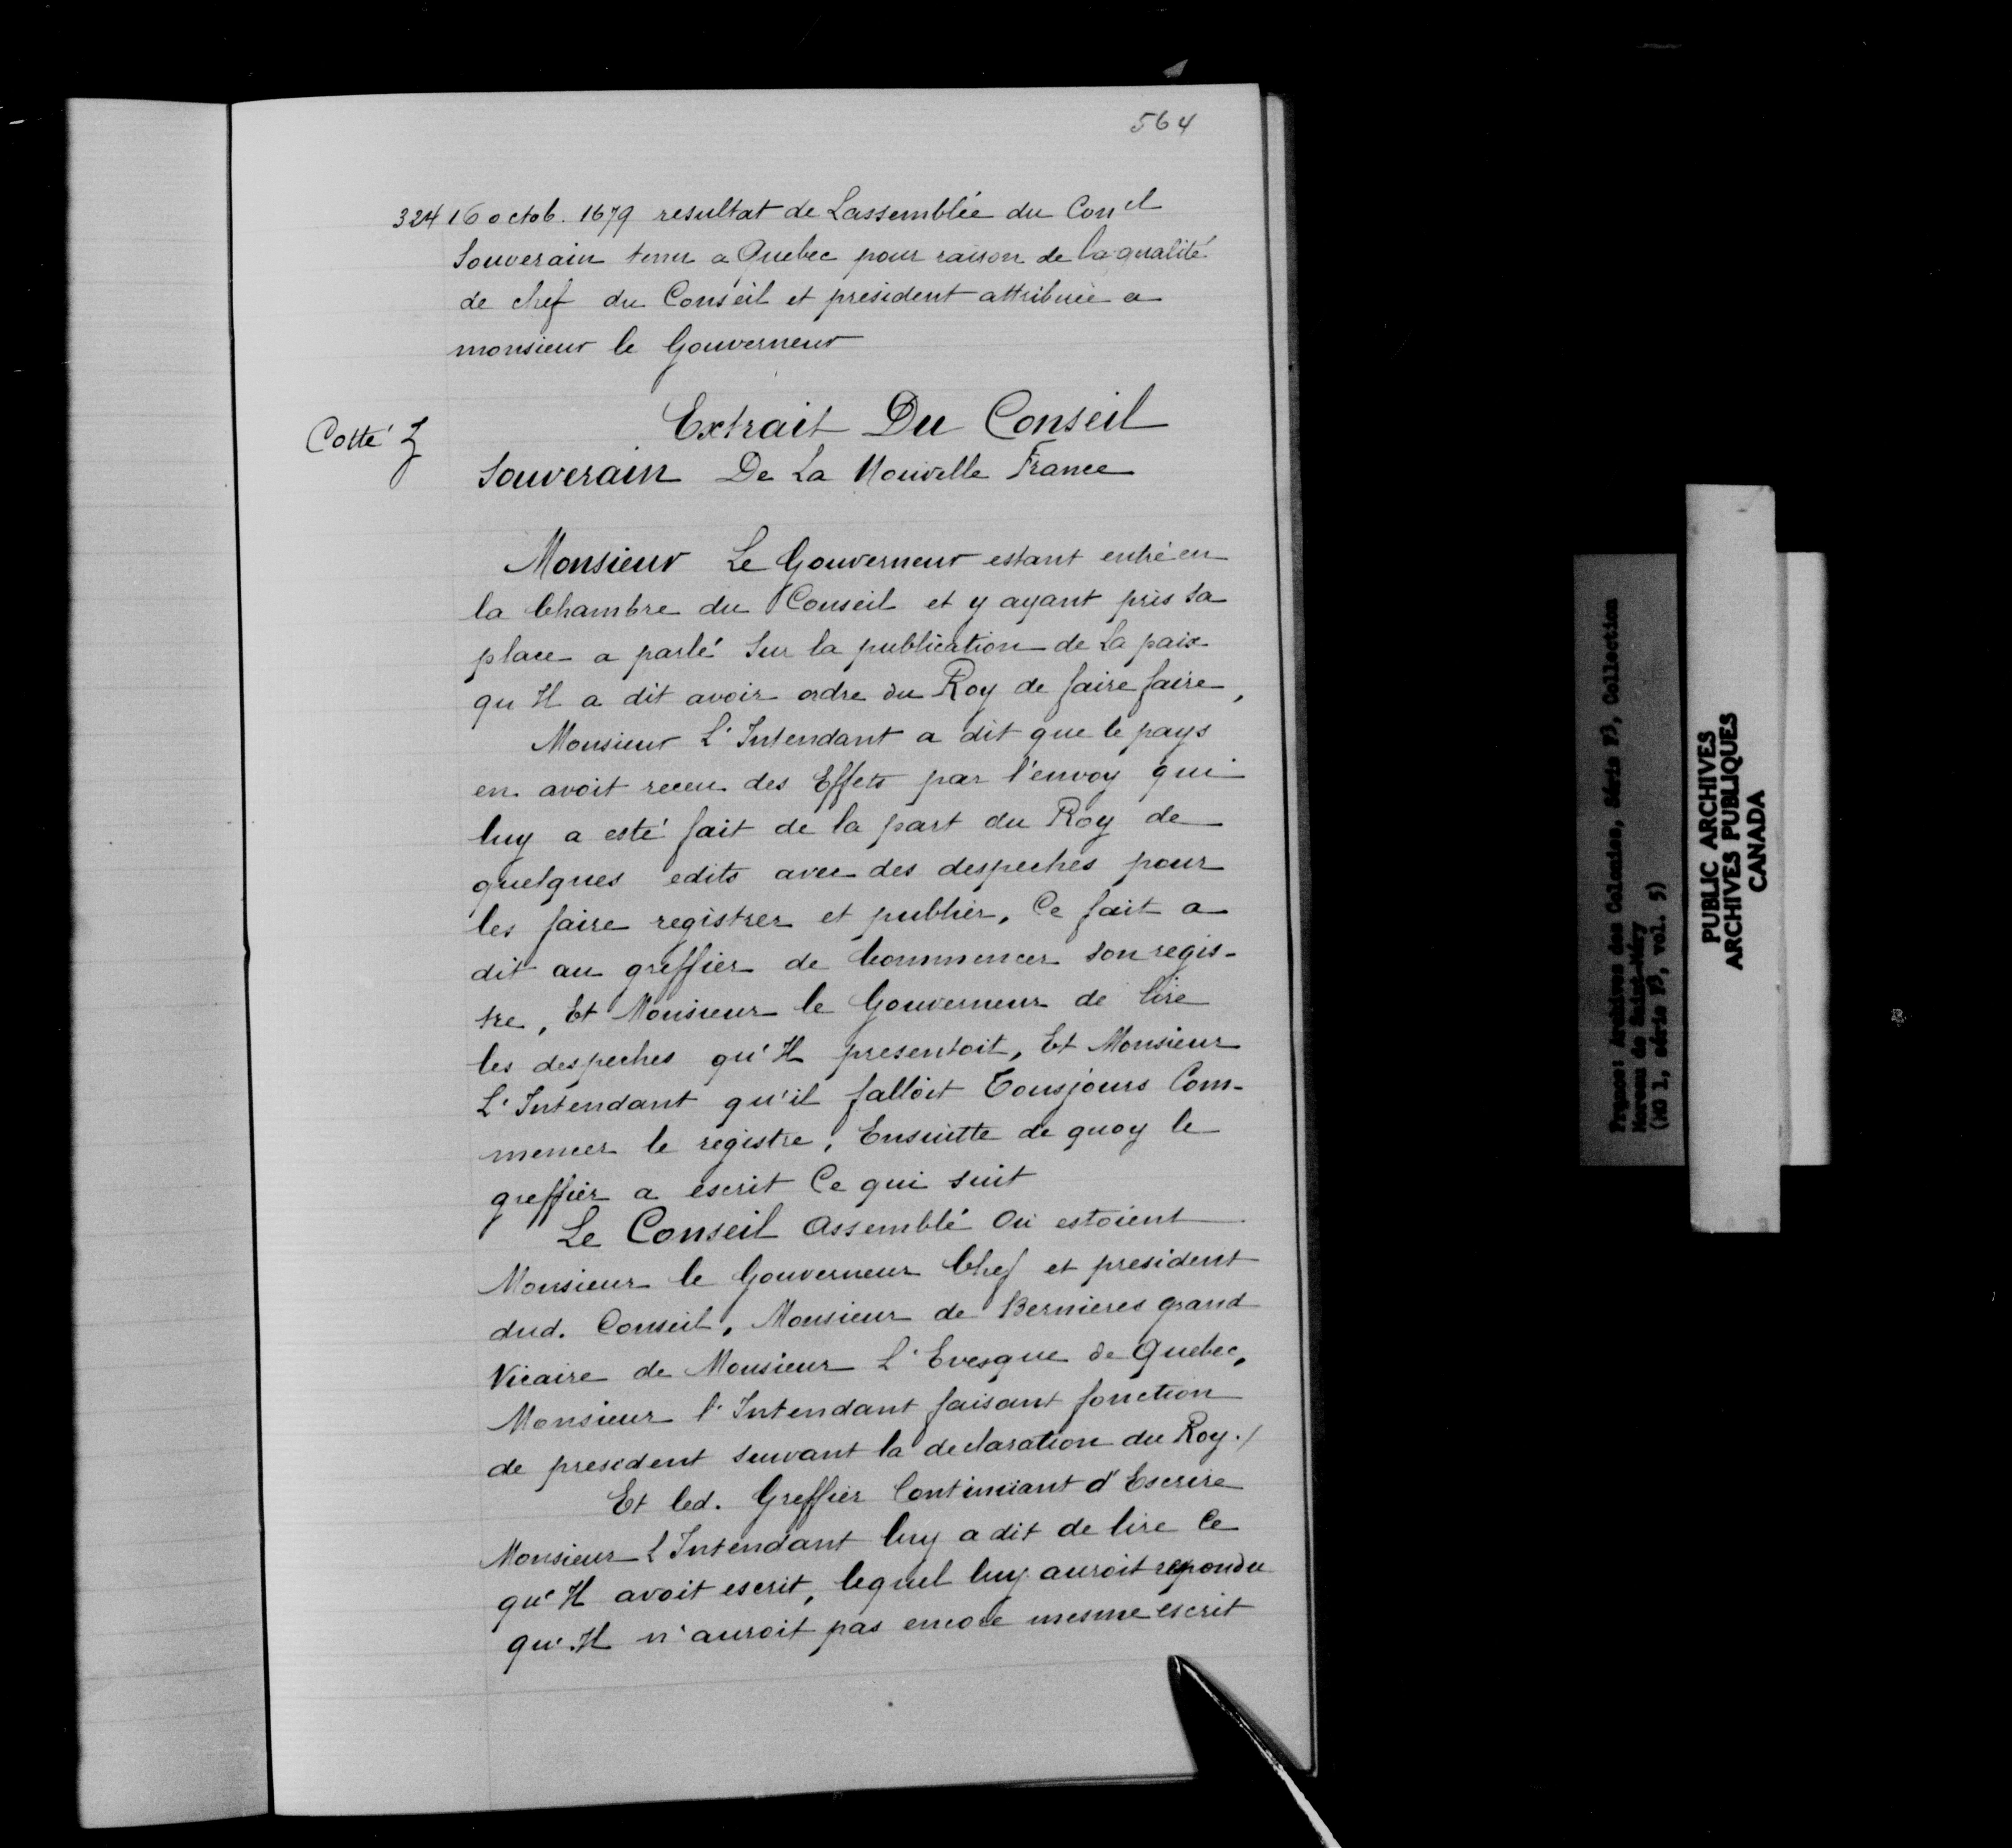 564
324 16 octob. 1679 resultat de Lassemblée du Con el
Souverain tenu a Quebec pour raison de la qualité
de chef du Conseil et president attribuée a
monsieur le Gouverneur
Extrait Du Conseil
Cotté Z
Souverain De La Nouvelle France
Monsieur Le Gouverneur estant entré en
la Chambre du Conseil et y ayant pris sa
place a parlé sur la publication de La paix
qu Il a dit avoir ordre du Roy de faire faire,
Monsieur L'Intendant a dit que le pays
en avoit receu des Effets par l'envoy qui
luy a esté fait de la part du Roy de
quelques edits avec des despeches pour
les faire registrer et publier, Ce fait a
dit au greffier de Commencer son regis-
tre, Et Monsieur le Gouverneur de lire
les despeches qu'Il presentoit, Et Monsieur
L'Intendant qu'il falloit Tousjours Com-
mencer le registre, Ensuitte de quoy le
greffier a escrit Ce qui suit
Le Conseil Assemblé Ou estoient
Monsieur le Gouverneur Chef et president
dud. Conseil, Monsieur de Bernieres grand
Vicaire de Monsieur L'Evesque de Quebec,
Monsieur l'Intendant faisant fonction
de president suivant la declaration du Roy./
Et led. Greffier Continüant d'Escrire
Monsieur L'Intendant luy a dit de lire Ce
qu'Il avoit escrit, lequel luy auroit repondu
qu'Il n'auroit pas encore mesme escrit
France: Archives des Colonies, Série F3, Collection
Moreau de Saint-Méry
(MG 1, série F3, vol. 5)
PUBLIC ARCHIVES
ARCHIVES PUBLIQUES
CANADA